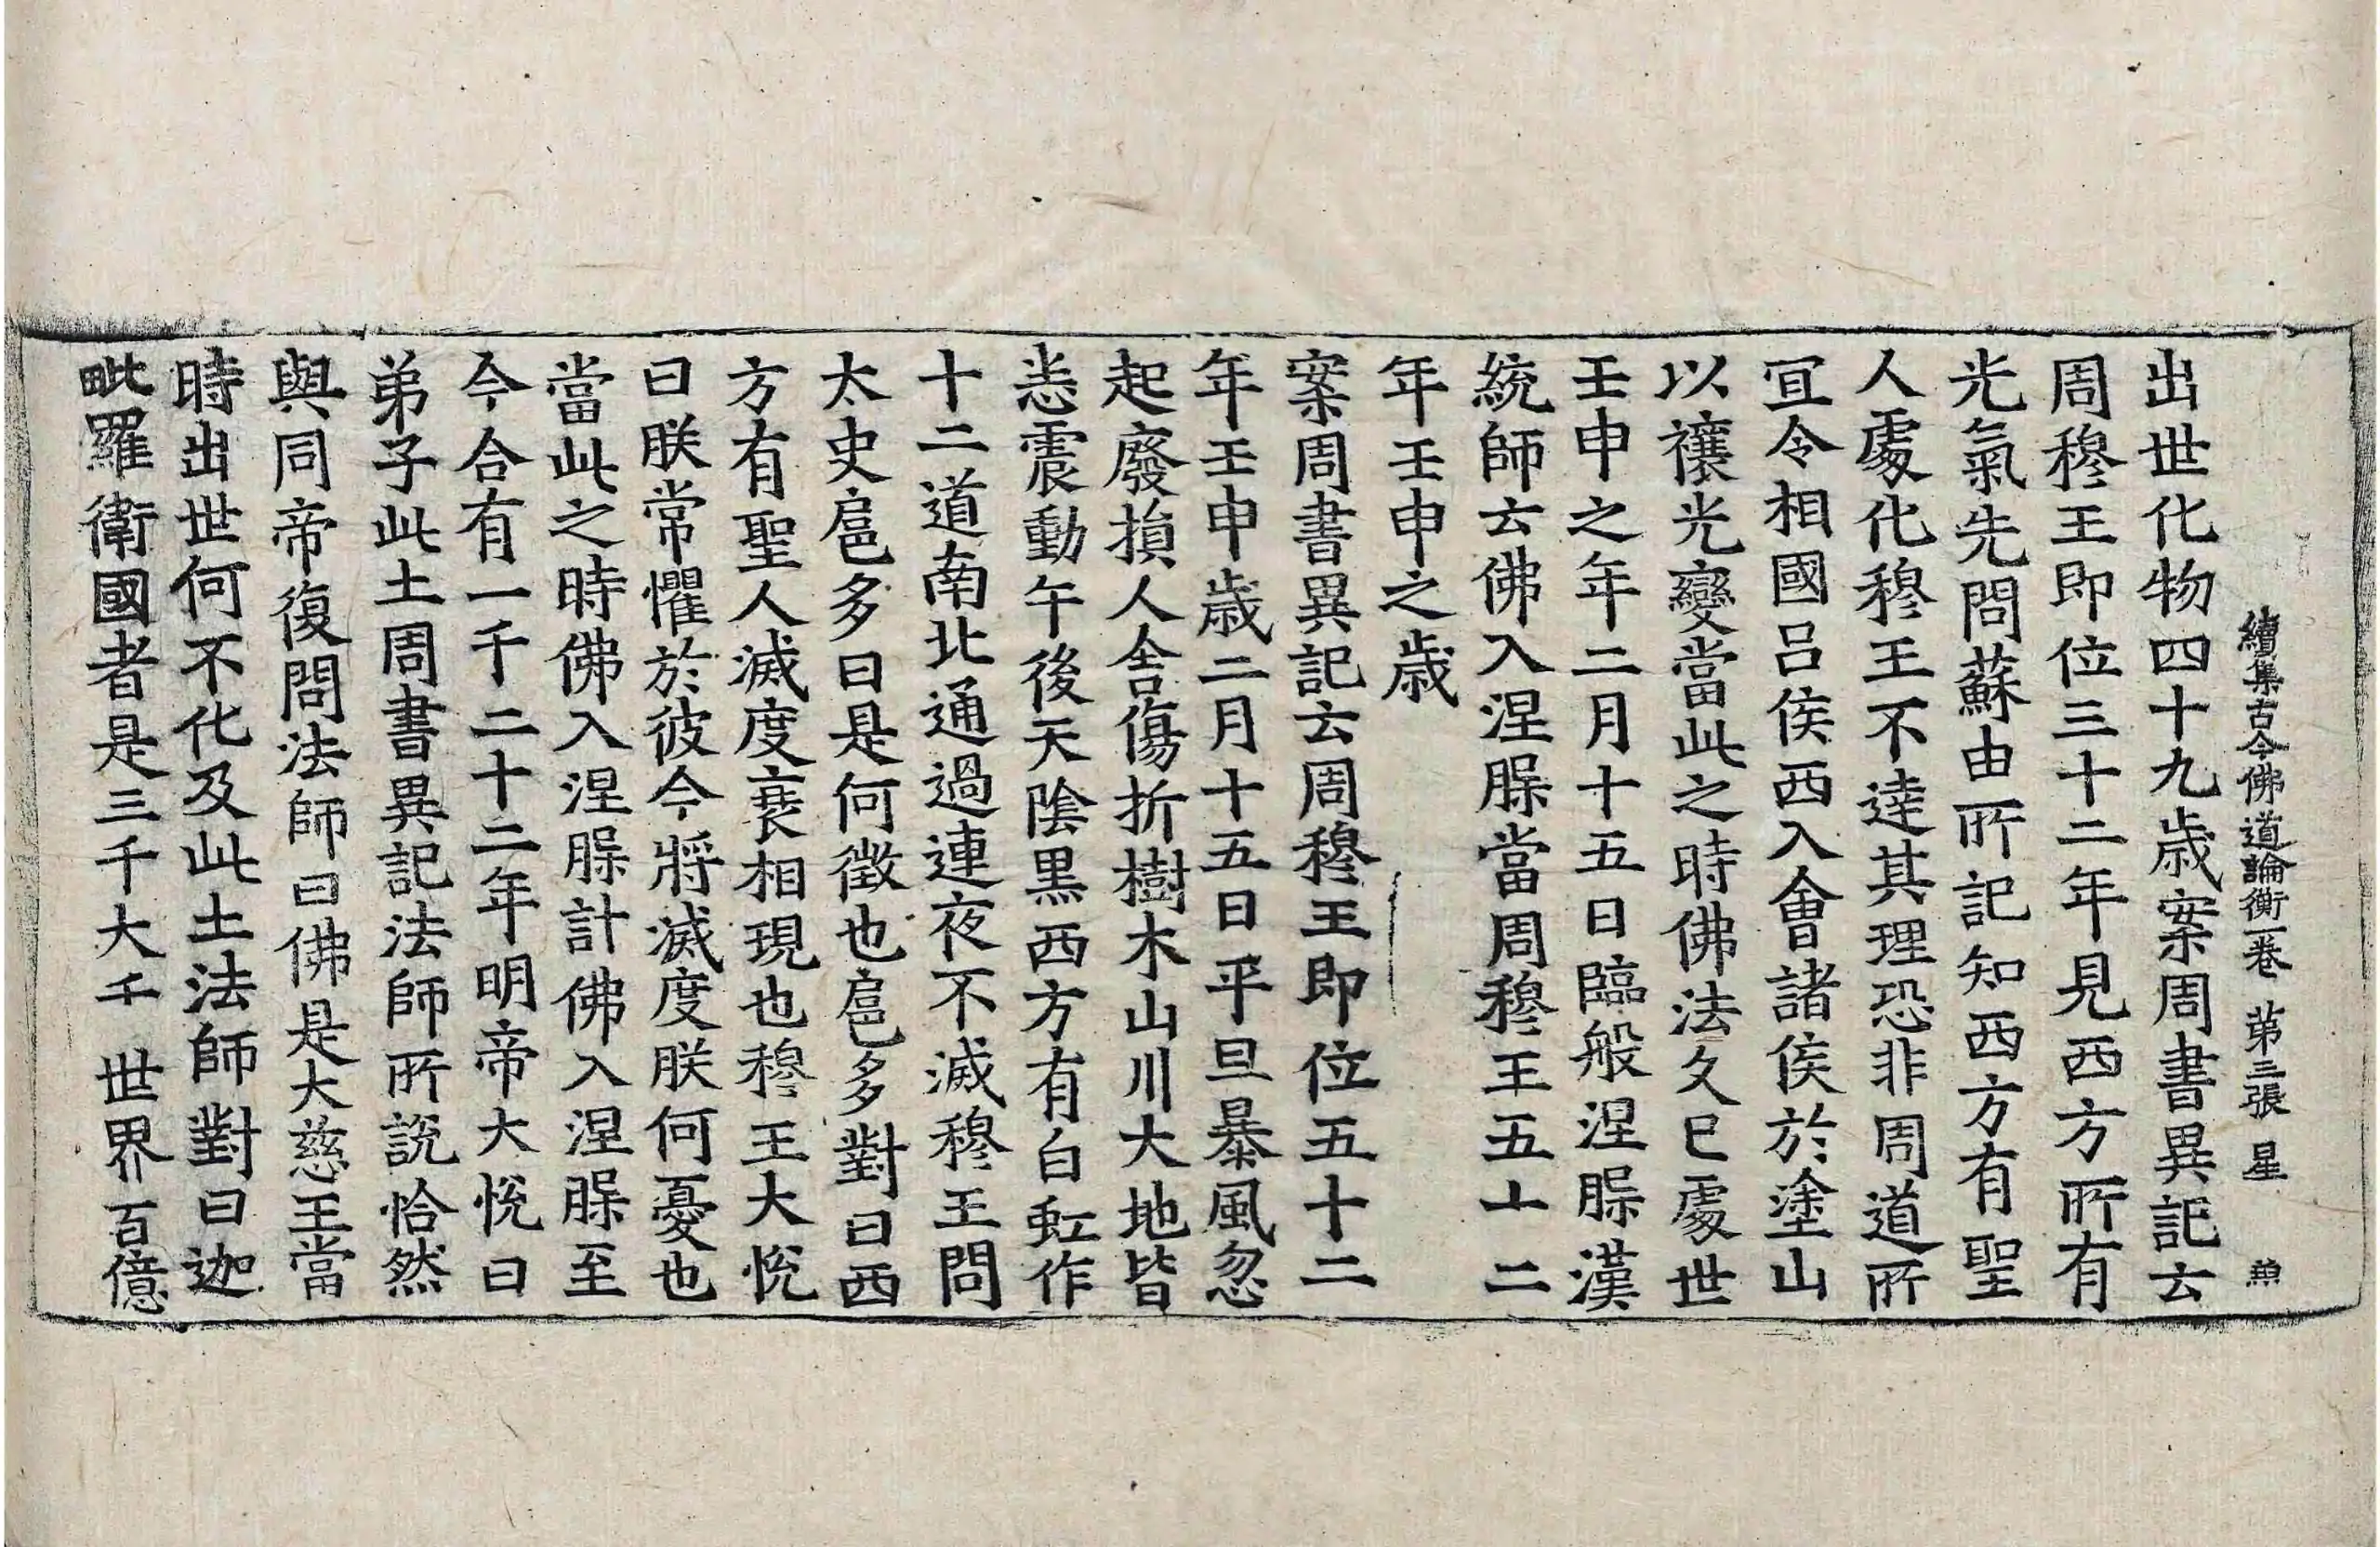 續集古今佛道論衡一卷 第三張 星
出世化物四十九歳案周書異記云
周穆王即位三十二年見西方所有
光氣先問蘇由所記知西方有聖
人處化穆王不達其理恐非周道所
冝令相國吕侯西入會諸侯於塗山
以禳光變當此之時佛法久已處世
壬申之年二月十五日臨般涅槃漢
統師云佛入涅槃當周穆王五十二
年壬申之歳
案周書異記云周穆王即位五十二
年壬申歳二月十五日平旦暴風忽
起廢損人舍傷折樹木山川大地皆
悉震動午後天陰黒西方有白虹作
十二道南北通過連夜不滅穆王問
太史扈多曰是何徴也扈多對曰西
方有聖人滅度衰相現也穆王大悅
曰朕常懼於彼今將滅度朕何憂也
當此之時佛入涅槃計佛入涅槃至
今合有一千二十二年明帝大悅曰
弟子此土周書異記法師所説恰然
與同帝復問法師曰佛是大慈王當
時出世何不化及此土法師對曰迦
毗羅衛國者是三千大千世界百億